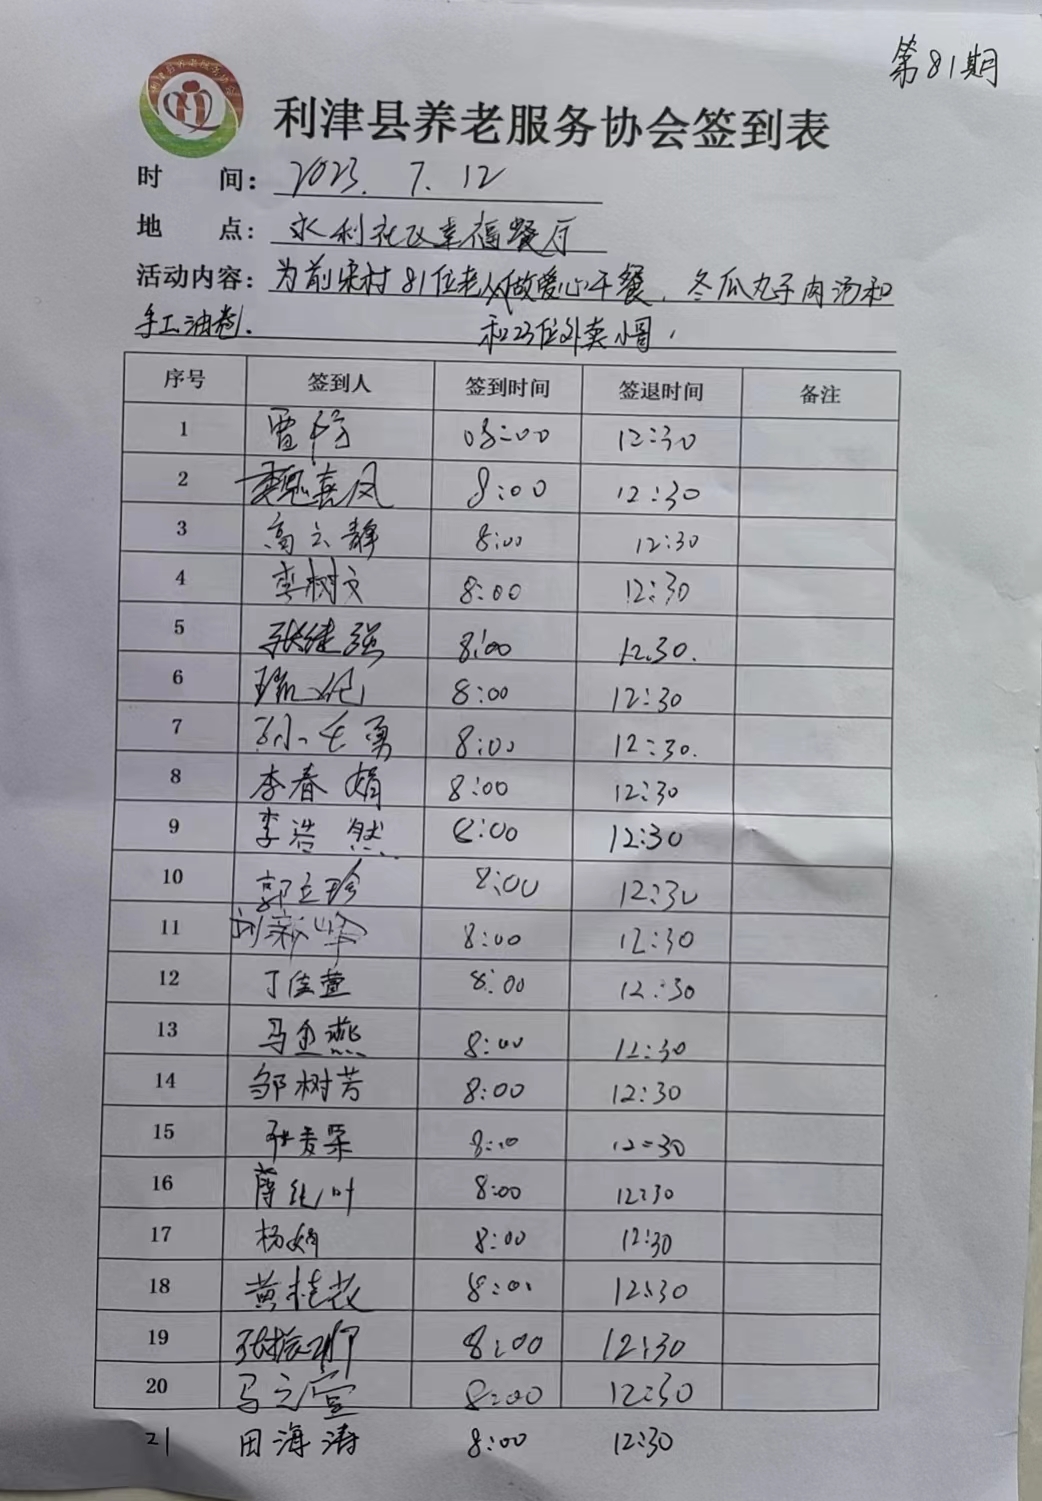 第81期
利津县养老服务协会签到表
时 间: 2023. 7. 12
地 点: 永利社区幸福餐厅
活动内容: 为前宋村81位老人做爱心午餐. 冬瓜丸子肉汤和
手工油卷. 和23位外卖小哥.
序号 签到人 签到时间 签退时间 备注
1 贾 08:00 12:30
2 魏喜凤 8:00 12:30
3 高云静 8:00 12:30
4 李树文 8:00 12:30
5 张继强 8:00 12.30.
6 8:00 12:30
7 孙七勇 8:00 12:30.
8 李春娟 8:00 12:30
9 李浩然 8:00 12:30
10 郭立珍 8:00 12:30
11 刘新峰 8:00 12:30
12 丁佳萱 8:00 12:30
13 马玉燕 8:00 12:30
14 邹树芳 8:00 12:30
15 8:00 12:30
16 薛红叶 8:00 12:30
17 杨娟 8:00 12:30
18 黄桂花 8:00 12:30
19 张振卿 8:00 12:30
20 马之萱 8:00 12:30
21 田海涛 8:00 12:30